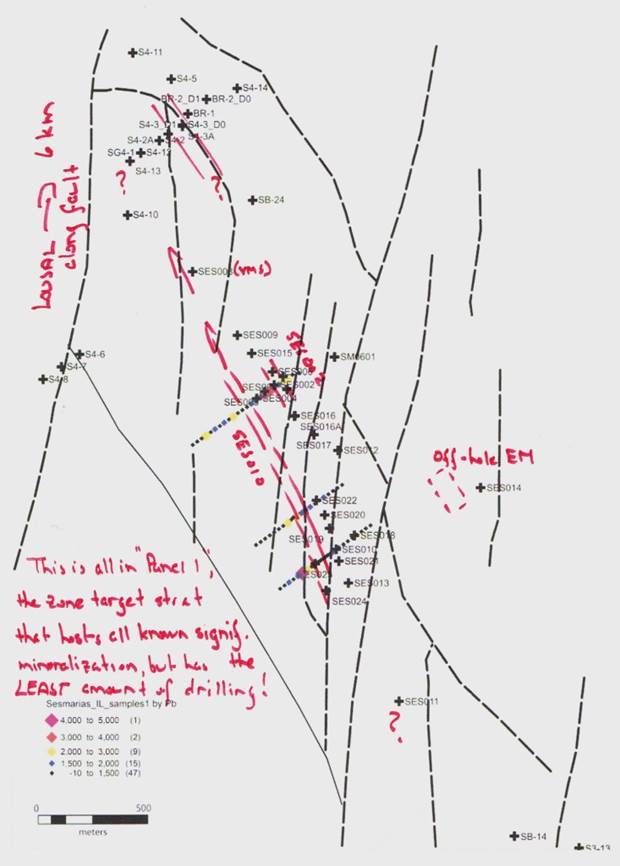 S4-11
S4-5
S4-14
BR-2_D1
BR-2_D0
BR-1
S4-3_D1
S4-3_D0
S4-3A
S4-2A
S4-2
SG4-1
S4-12
S4-13
?
?
LOUSAL → 6 km
along fault
S4-10
SB-24
SES008 (VMS)
SES009
SES015
SES002
SM0601
S4-6
S4-7
S4-8
SES002
SES004
SES016
SES016A
SES017
SES012
SES010
Off-hole EM
SES014
SES022
SES020
SES019
SES018
SES010
SES021
SES013
SES023
SES024
This is all in "Panel 1",
the zone target strat
that hosts all known signif.
mineralization, but has the
LEAST amount of drilling!
SES011
?
Sesmarias_IL_samples1 by Pb
4,000 to 5,000 (1)
3,000 to 4,000 (2)
2,000 to 3,000 (9)
1,500 to 2,000 (15)
-10 to 1,500 (47)
0 500
meters
SB-14